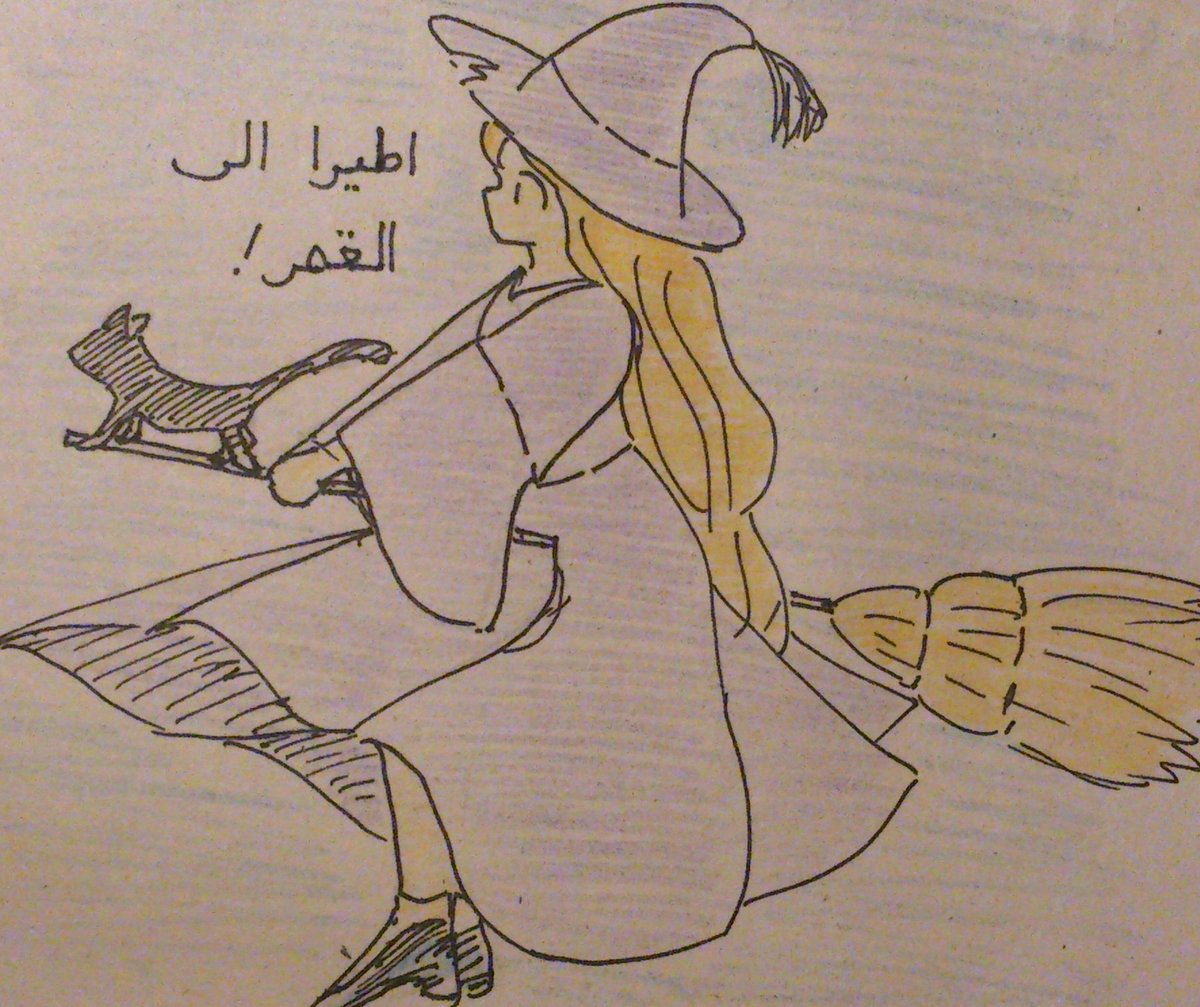 اطيرا الى
القمر!